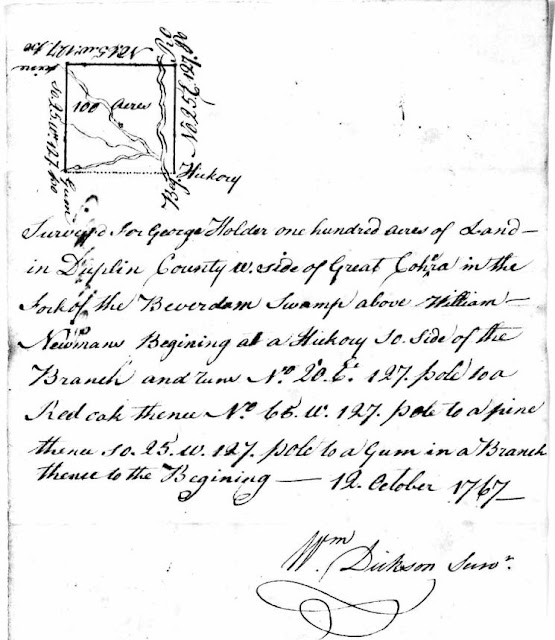 No 65 w 127. po
pine
100 Acres
So. 25 w 127 po
Gum
Beg
Hickory
Surveyed For George Holder one hundred acres of Land —
in Duplin County w. side of Great Coh.ra in the
Fork of the Beverdam Swamp above William —
Newmans Begining at a Hickory So. side of the
Branch and runs No. 20. Et. 127. pole to a
Red oak thence No. 65. w. 127. pole to a pine
thence So. 25. w. 127. pole to a Gum in a Branch
thence to the Begining — 12. October 1767 —
Wm. Dickson Survr.